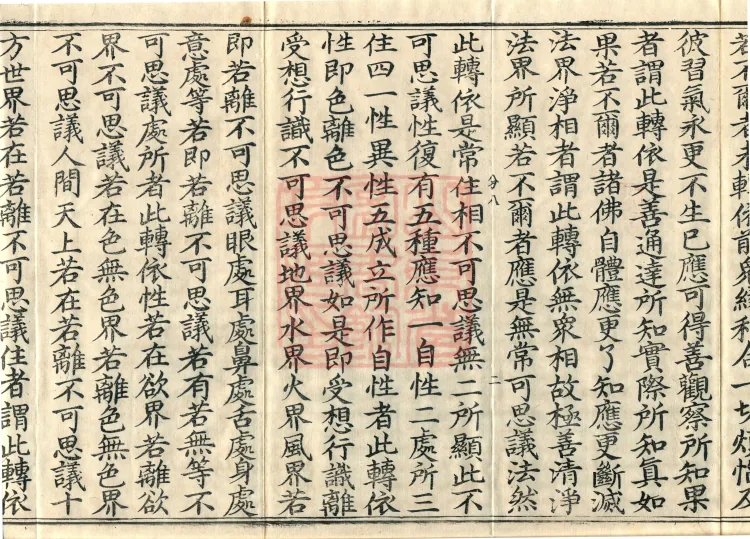 若不爾者
彼習氣永更不生已應可得善觀察所知果
者謂此轉依是善通達所知實際所知真如
果若不爾者諸佛自體應更了知應更斷滅
法界淨相者謂此轉依無衆相故極善清淨
法界所顯若不爾者應是無常可思議法然
分八 二
此轉依是常住相不可思議無二所顯此不
可思議性復有五種應知一自性二處所三
住四一性異性五成立所作自性者此轉依
性即色離色不可思議如是即受想行識離
受想行識不可思議地界水界火界風界若
即若離不可思議眼處耳處鼻處舌處身處
意處等若即若離不可思議若有若無等不
可思議處所者此轉依性若在欲界若離欲
界不可思議若在色無色界若離色無色界
不可思議人間天上若在若離不可思議十
方世界若在若離不可思議住者謂此轉依